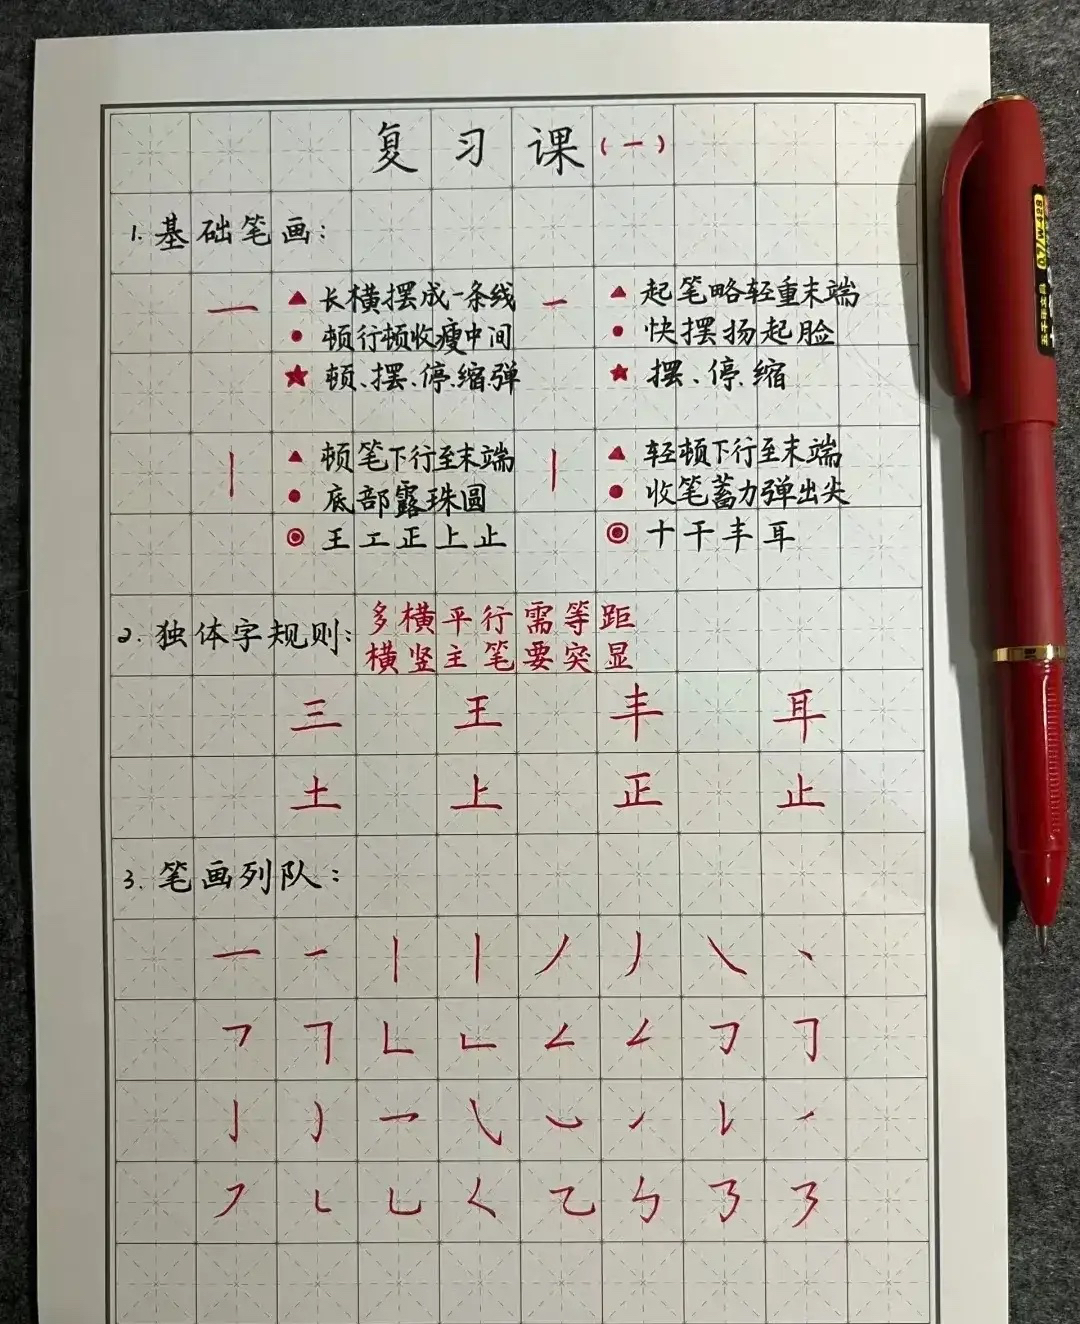 复习课(一)
1. 基础笔画:
一 ▲ 长横摆成一条线
● 顿行顿收瘦中间
★ 顿、摆、停、缩、弹
一 ▲ 起笔略轻重末端
● 快摆扬起脸
★ 摆、停、缩
丨 ▲ 顿笔下行至末端
● 底部露珠圆
◎ 王工正上止
丨 ▲ 轻顿下行至末端
● 收笔蓄力弹出尖
◎ 十干丰耳
2. 独体字规则: 多横平行需等距
横竖主笔要突显
三 王 丰 耳
土 上 正 止
3. 笔画列队:
0.7/W-428